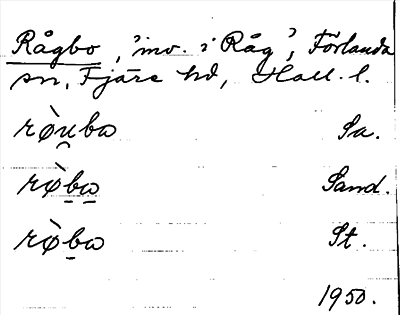 Rågbo, 'inv. i Råg', Förlanda
sn, Fjäre hd, Hall. l.
rø̀u̯bω Sa.
rø̀b̠ω̠ Sand.
rø̀b̠ω St.
1950.